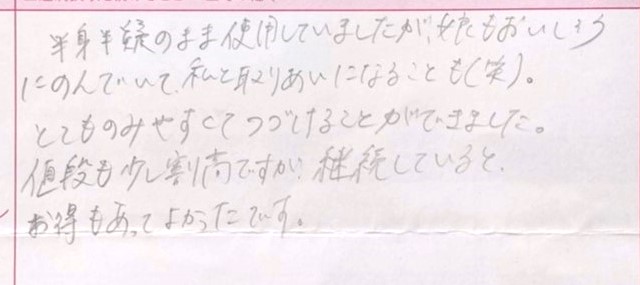 半身半疑のまま使用していましたが、娘もおいしそう
にのんでいて、私と取りあいになることも(笑)。
とてものみやすくてつづけることができました。
値段も少し割高ですが、継続していると、
お得もあってよかったです。